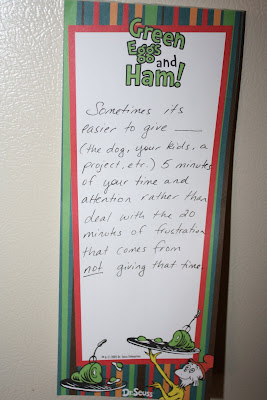 Green
Eggs
and
Ham!
Sometimes its
easier to give ____
(the dog, your kids, a
project, etc.) 5 minutes
of your time and
attention rather than
deal with the 20
minutes of frustration
that comes from
not giving that time.
Dr. Seuss